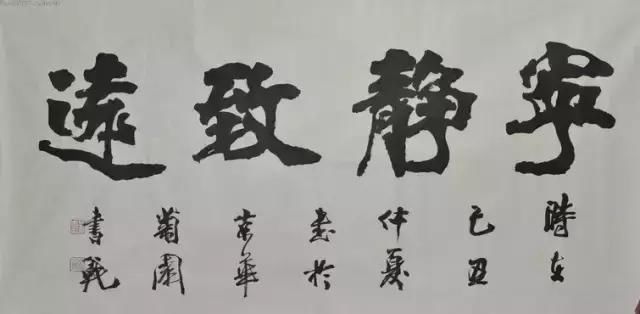 寧靜致遠
時在
己丑
仲夏
書於
京華
菊園
書